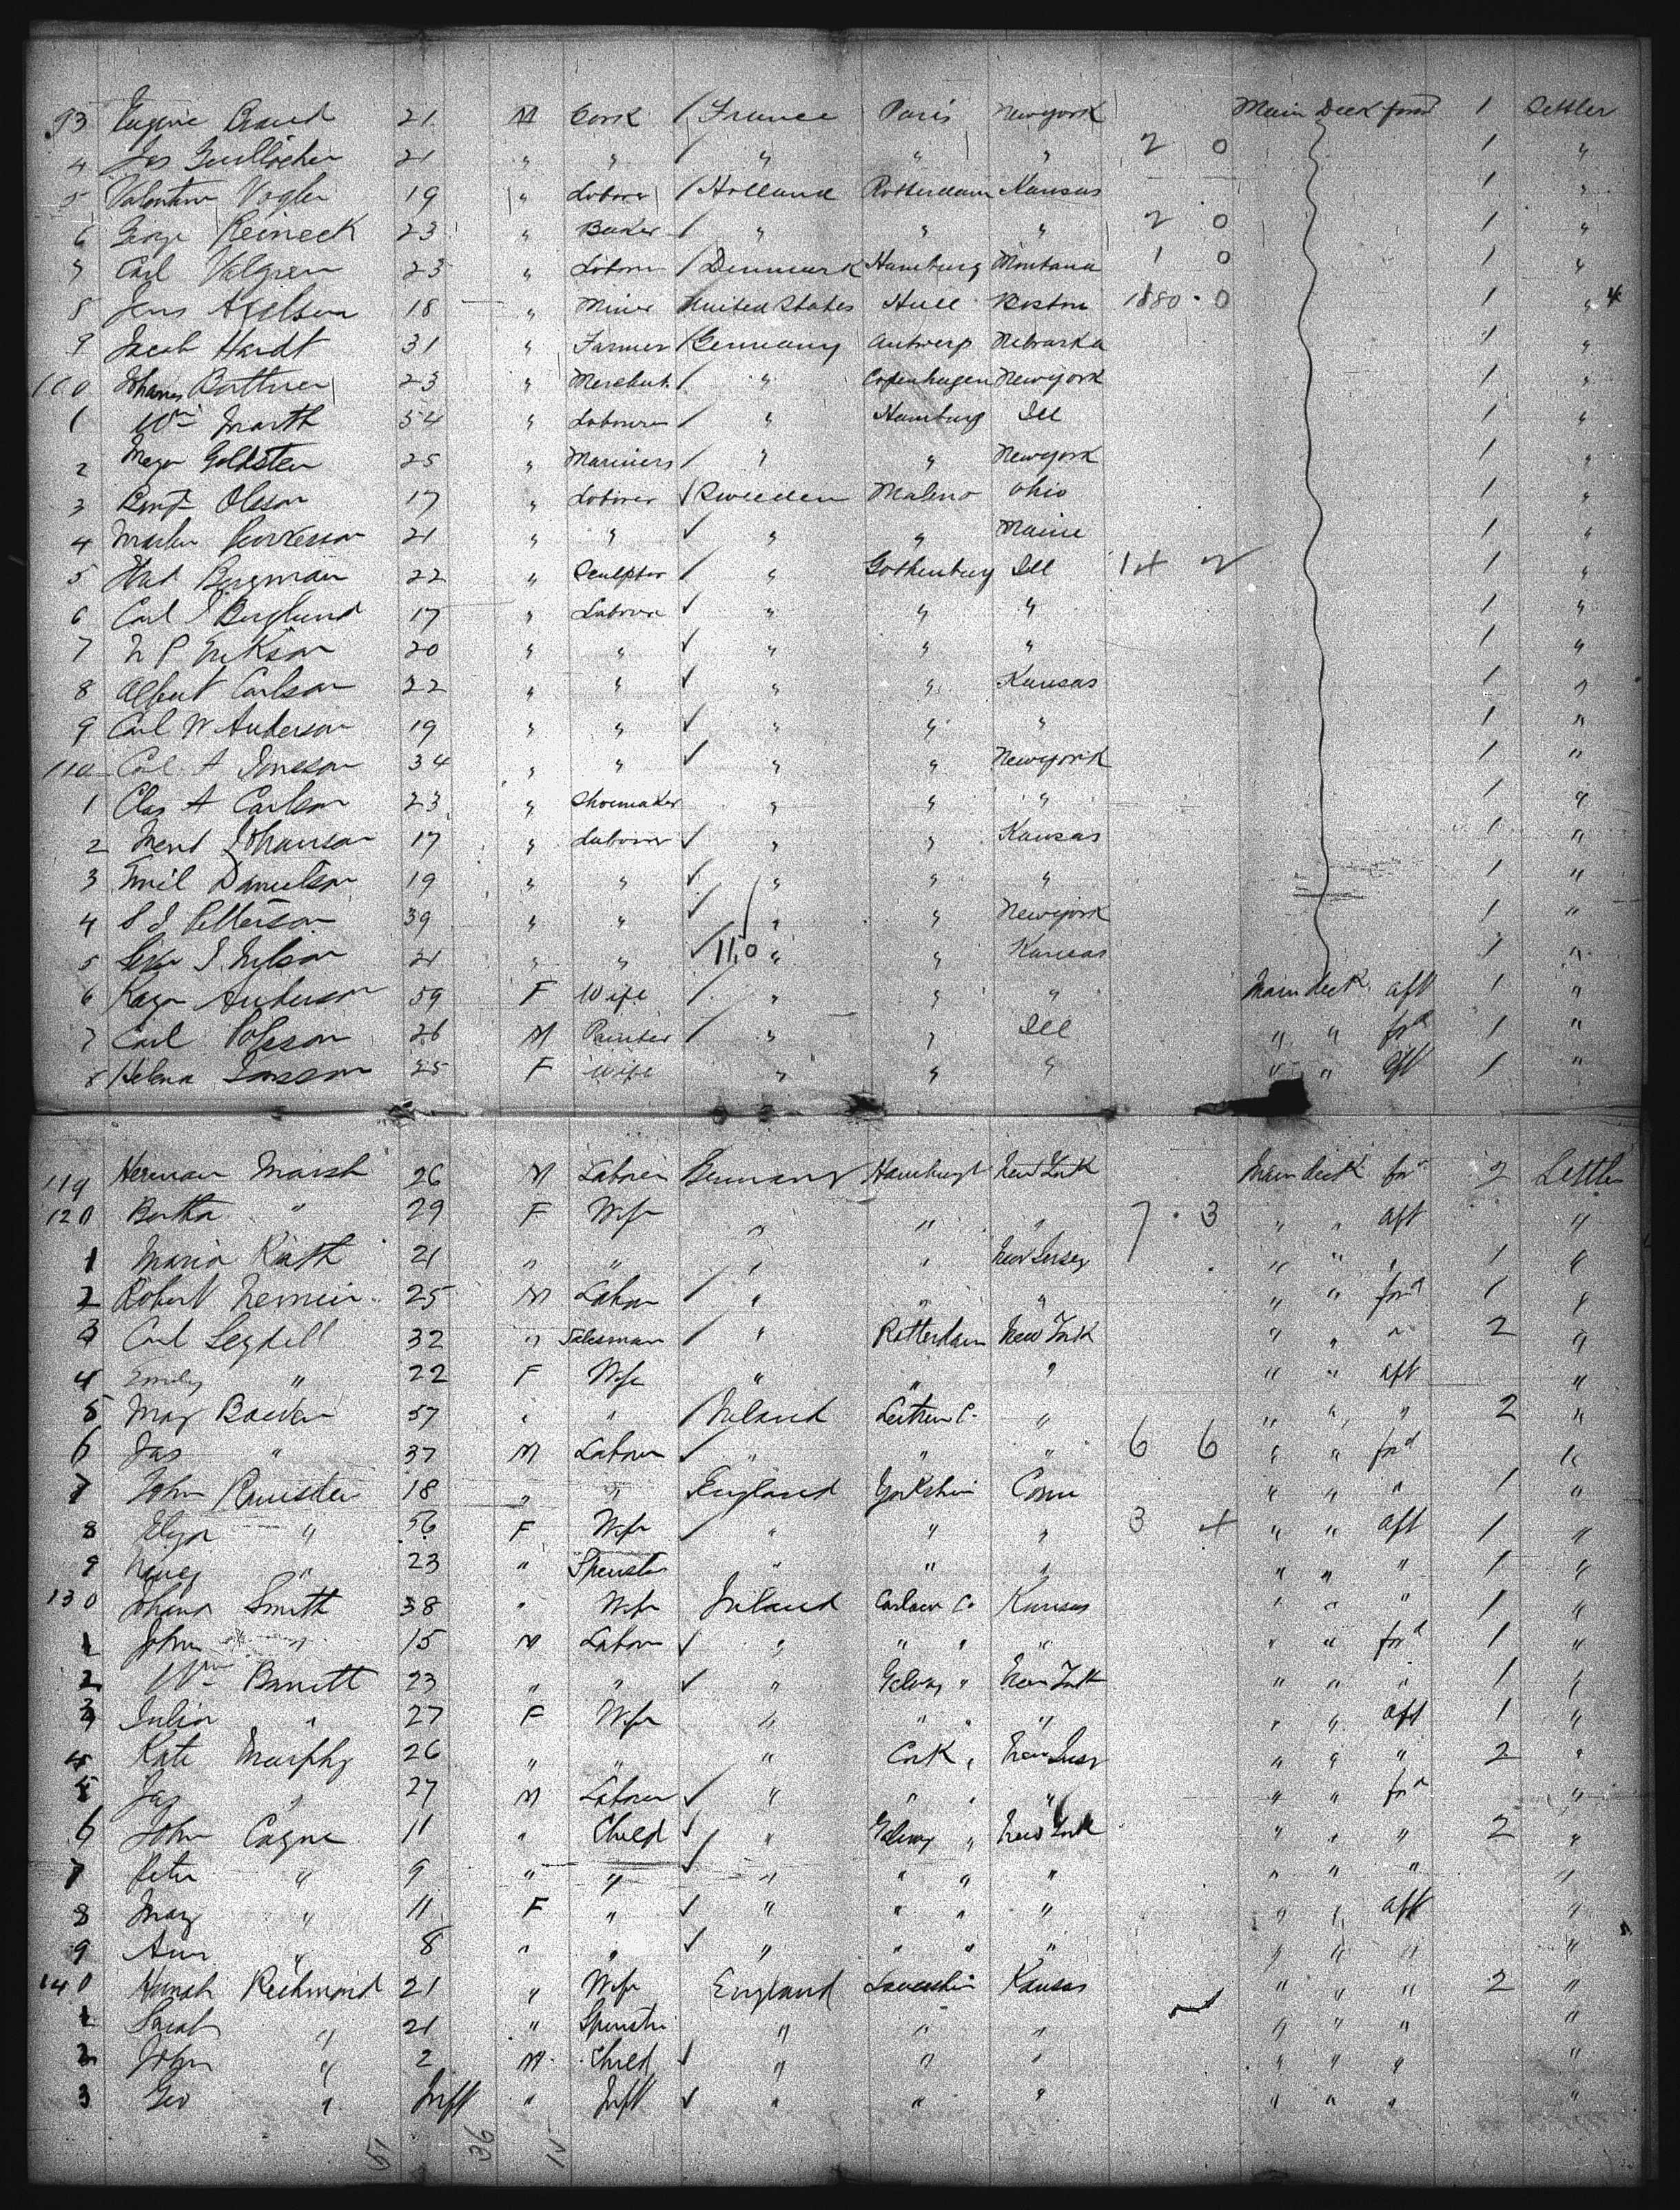 93 Eugene Braud 21 M Cook / France Paris Newyork Main Deck ford 1 Settler
4 Jos 21 " " / " " " 2 0 1 "
5 Valentine Vogler 19 " Laborer / Holland Rotterdam Kansas 1 "
6 George Reineck 23 " Baker / " " " 2 0 1 "
7 Carl 23 " Laborer / Denmark Hamburg Montana 1 0 1 "
8 Jens Axelsen 18 " Miner United States Hull Boston 1880 . 0 1 " 4
9 Jacob Hardt 31 " Farmer / Germany Antwerp Nebraska 1 "
100 Johannes 23 " / " Copenhagen Newyork 1 "
1 Wm Marth 54 " Labourer / " Hamburg Ill 1 "
2 Goldstein 25 " Mariners / " " Newyork 1 "
3 Olsson 17 " Laborer ✓ Sweeden Malmo Ohio 1 "
4 Martin 21 " " ✓ " " Maine 1 "
5 Bergman 22 " Sculptor / " Gothenburg Ill 14 2 1 "
6 Carl J Berglund 17 " Laborer ✓ " " " 1 "
7 N P Erikson 20 " " ✓ " " " 1 "
8 Albert Carlson 22 " " ✓ " " Kansas 1 "
9 Carl W Anderson 19 " " ✓ " " " 1 "
110 Carl A Joneson 34 " " ✓ " " Newyork 1 "
1 Clas A Carlson 23 " Shoemaker " " " 1 "
2 Johanson 17 " Laborer ✓ " " Kansas 1 "
3 Emil Danielson 19 " " ✓ " " " 1 "
4 S J Petterson 39 " " ✓ " " Newyork 1 "
5 J Nilson 21 " " ✓ 110 " " Kansas 1 "
6 Anderson 59 F Wife / " " " Main deck aft 1 "
7 Carl 26 M Painter / " " Ill " " ford 1 "
8 Helena 25 F Wife " " " " " aft 1 "
119 Herman Marsh 26 M Laborer Germany Hamburgh New York Main deck for 2 Settler
120 Bertha " 29 F Wife " " " 7 . 3 " " aft "
1 Maria Rath 21 " " / " " New Jersey " " " 1 "
2 Robert 25 M Labor / " " " " " ford 1 "
3 Carl Seydell 32 " Salesman / " Rotterdam New York " " " 2 "
4 Emily " 22 F Wife " " " " " aft "
5 May 57 " " / Ireland Leitrim Co " " " " 2 "
6 Jas " 37 M Laborer ✓ " " " 6 6 " " ford "
7 John 18 " " England Yorkshire Conn " " " 1 "
8 Eliza " 56 F Wife / " " " 3 4 " " aft 1 "
9 " 23 " Spinster " " " " " " 1 "
130 Johana Smith 38 " Wife Ireland Carlow Co Kansas " " " 1 "
1 John " 15 M Labor ✓ " " " " " " ford 1 "
2 Wm Barrett 23 " " ✓ " Galway " New York " " " 1 "
3 Julia " 27 F Wife " " " " " " aft 1 "
4 Kate Murphy 26 " " " Cork " New Jersey " " " 2 "
5 Jas " 27 M Laborer ✓ " " " " " " for "
6 John Cagne 11 " Child ✓ " Galway " New York " " " 2 "
7 Peter " 9 " " ✓ " " " " " " " "
8 Mary " 11 F " ✓ " " " " " " aft "
9 Ann " 8 " " ✓ " " " " " " " "
140 Hannah Richmond 21 " Wife England Lancashire Kansas " " " 2 "
1 Sarah " 21 " Spinster " " " " " " "
2 John " 2 M Child ✓ " " " " " " "
3 Geo " Inft " Inft ✓ " " " " " " "
51 36 15